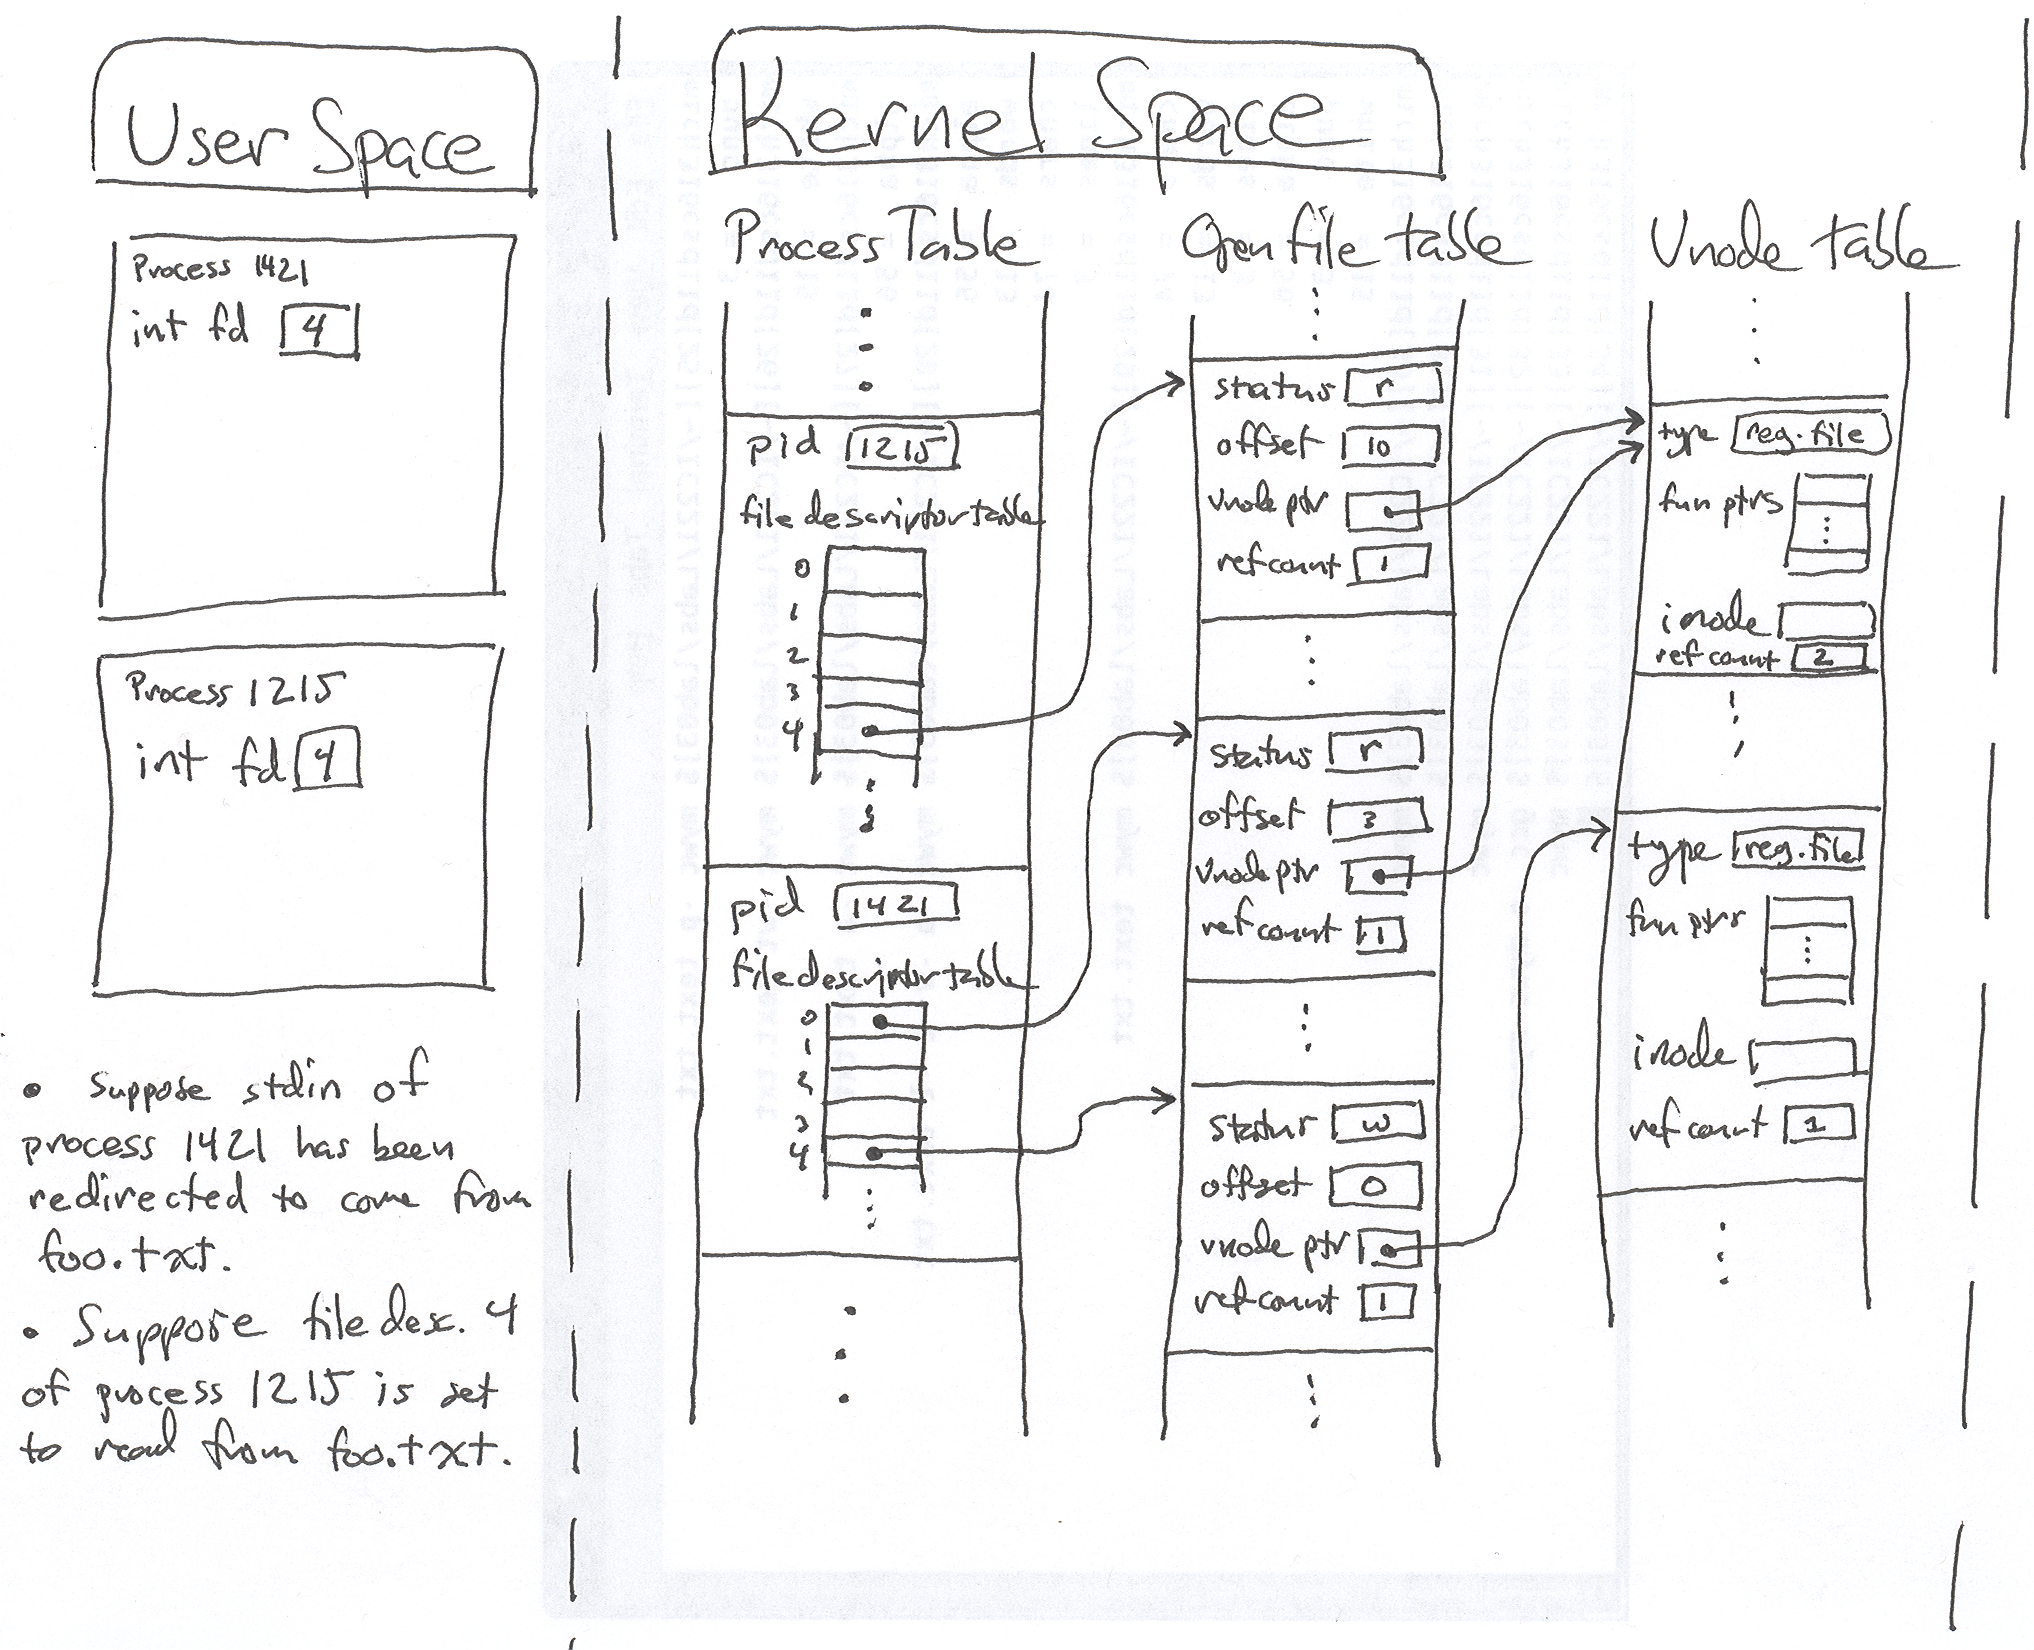 User Space
Kernel Space
Process 1421
int fd 4
Process 1215
int fd 4
• Suppose stdin of
process 1421 has been
redirected to come from
foo.txt.
• Suppose file desc. 4
of process 1215 is set
to read from foo.txt.
Process Table
pid 1215
file descriptor table
0
1
2
3
4
pid 1421
file descriptor table
0
1
2
3
4
Open file table
status r
offset 10
vnode ptr
ref count 1
status r
offset 3
vnode ptr
ref count 1
status w
offset 0
vnode ptr
ref count 1
Vnode table
type reg. file
fun ptrs
inode
ref count 2
type reg. file
fun ptrs
inode
ref count 1